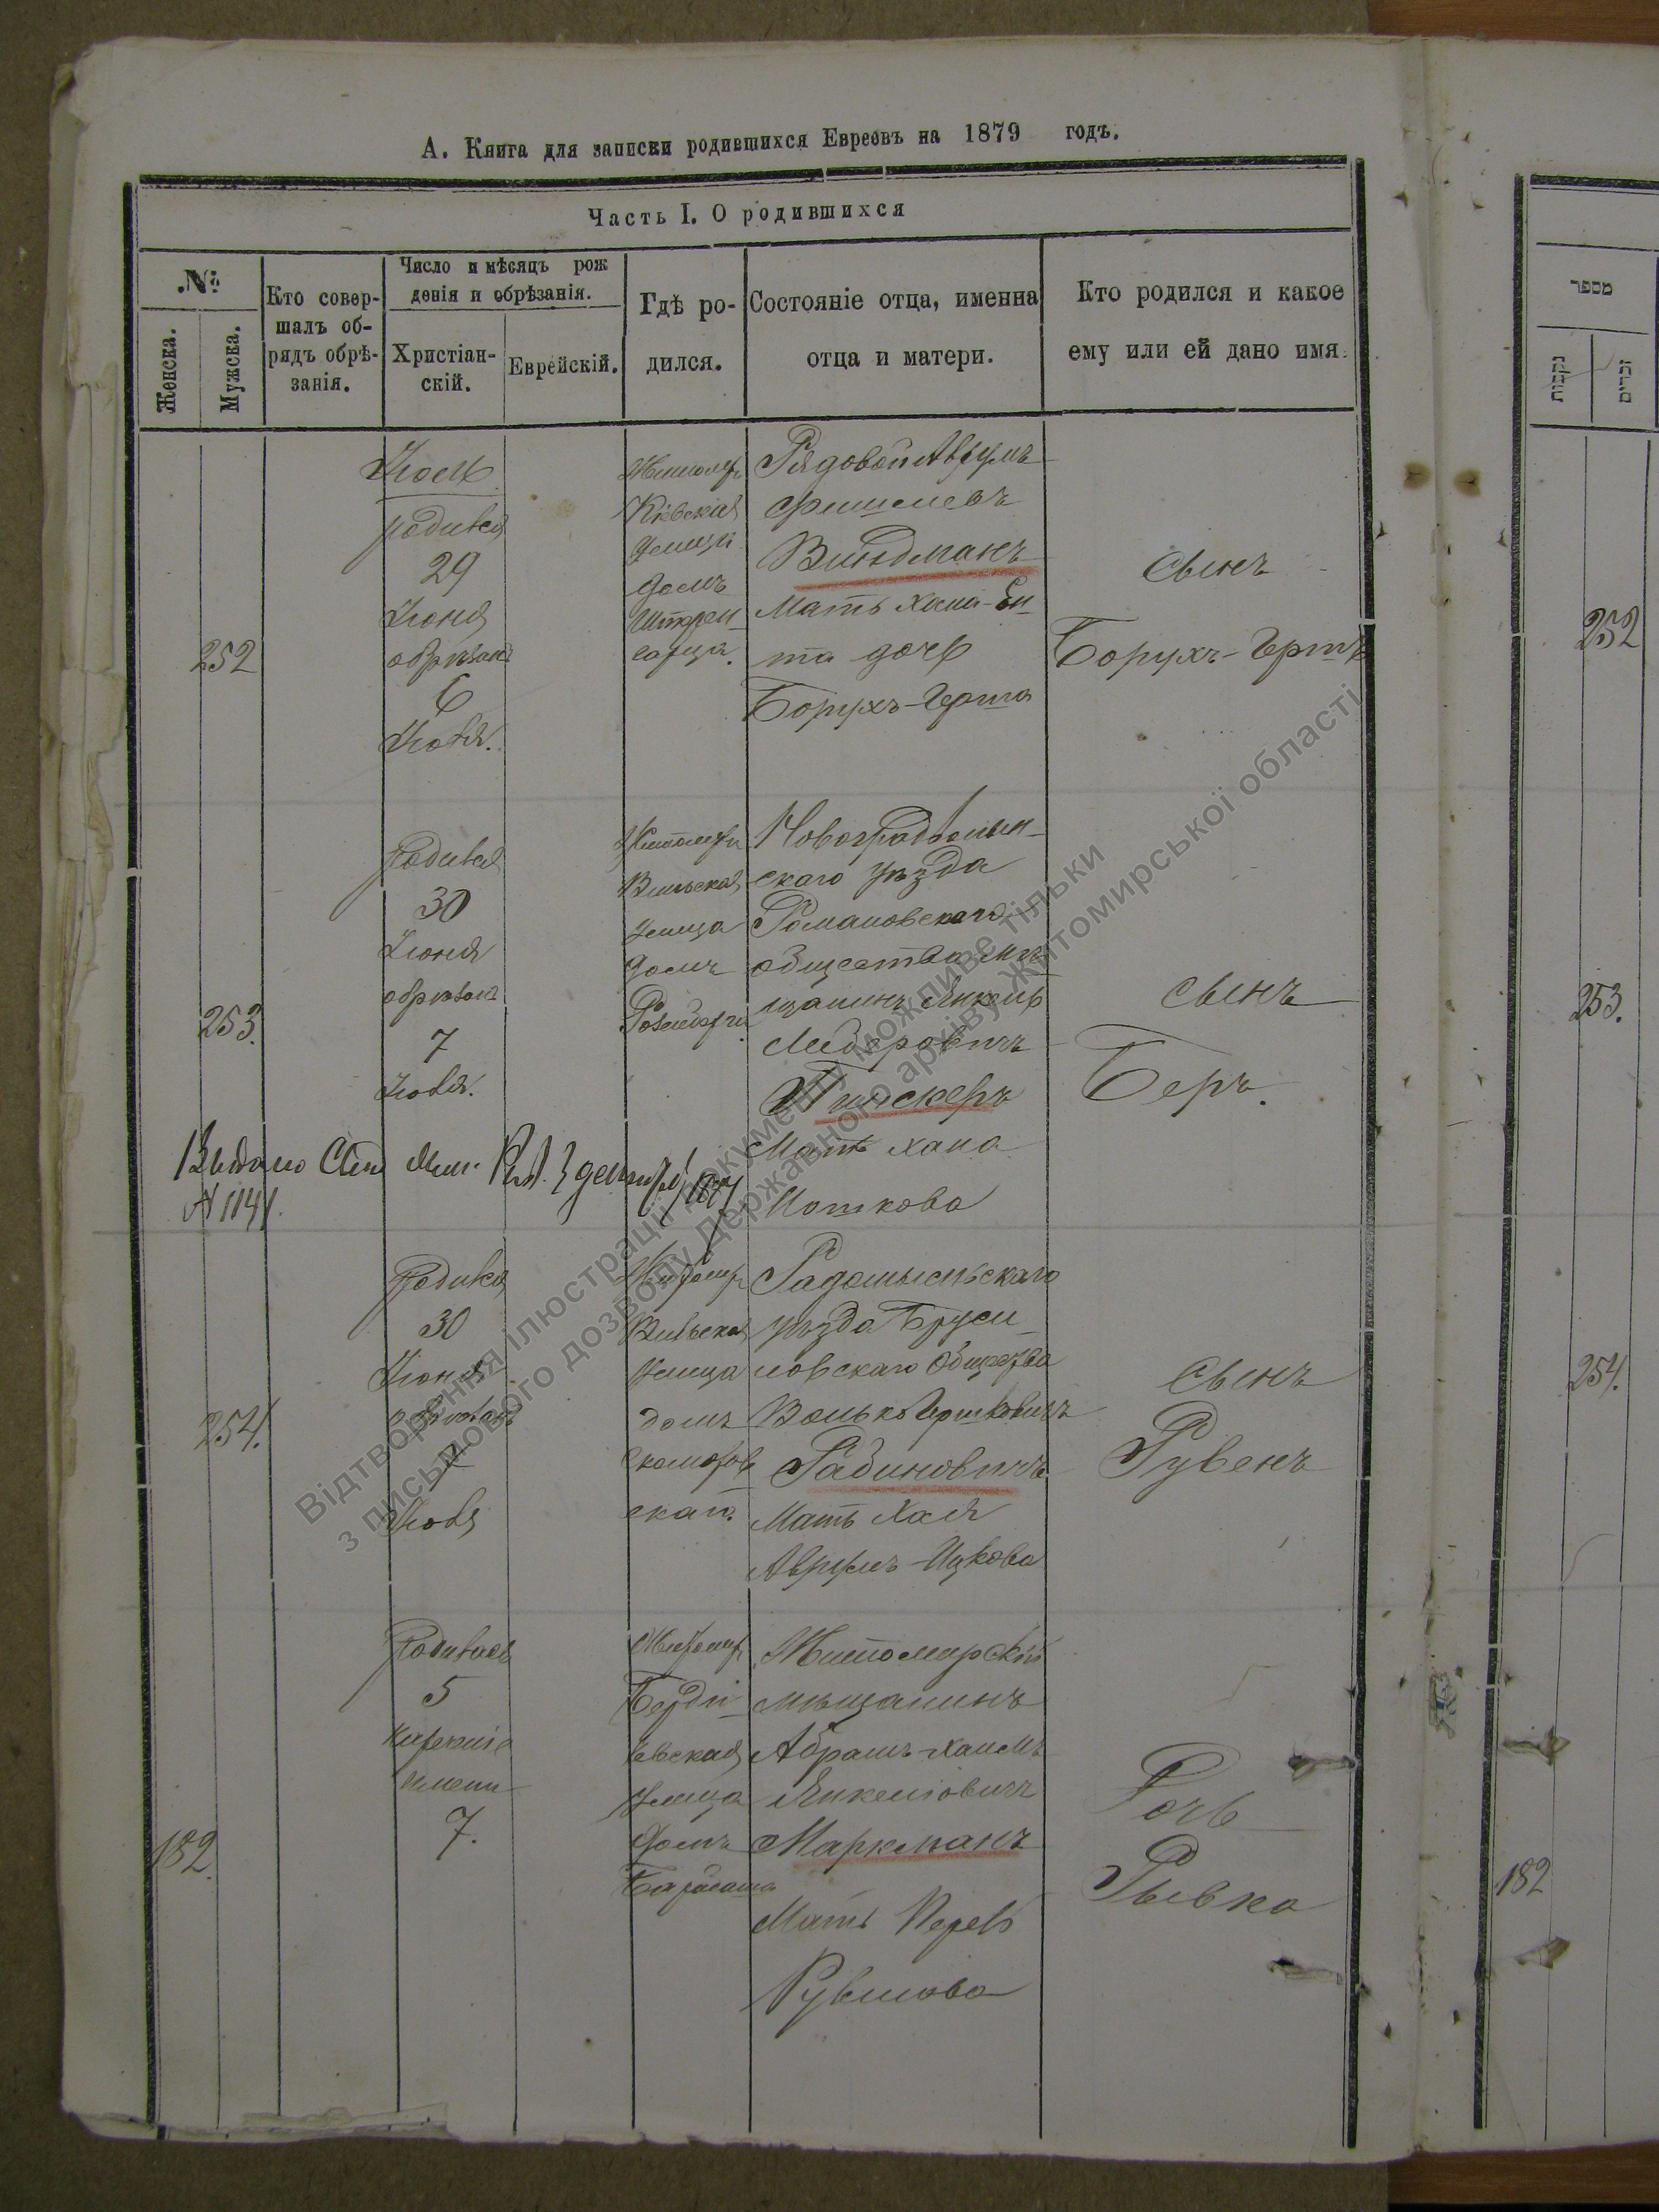 А. Книга для записки родившихся Евреевъ на 1879 годъ.
Часть I. О родившихся
№
Женска.
Мужска.
Кто совер-
шалъ об-
рядъ обрѣ-
занія.
Число и мѣсяцъ рож
денія и обрѣзанія.
Христіан-
скій.
Еврейскій.
Гдѣ ро-
дился.
Состояніе отца, именна
отца и матери.
Кто родился и какое
ему или ей дано имя.
252
Іюль
родился
29
Іюня
обрѣзанъ
6
Іюля.
Житомиръ
Кіевская
улица
домъ
Рядовой Аврумъ
Фишелевъ
Виндманъ
Мать Хана-Ен
та дочь
Борухъ-Герша
сынъ
Борухъ-Гершъ
253.
Родился
30
Іюня
обрѣзанъ
7
Іюля.
Житомиръ
Вильская
улица
домъ
Новоградволын-
скаго уѣзда
Романовскаго
общества мѣ-
щанинъ Янкель
Лейзеровичъ
Пинскеръ
Мать Хана
Мошкова
сынъ
Беръ.
Выдано
№ 1141.
254.
Родился
30
Іюня
обрѣзанъ
7
Іюля
Житомиръ
Вильская
улица
домъ
Скоморов
скай.
Радомысльскаго
уѣзда Бруси-
ловскаго Общества
Волько Гершковичъ
Рабиновичъ
Мать Хая
Аврумъ-Ицкова
сынъ
Рувенъ
182.
Родилась
5
наречение
имени
7.
Житомиръ
Берди-
чевская
улица
домъ
Житомирскій
мѣщанинъ
Абрамъ-Хаимъ
Янкелiовичъ
Маркманъ
Мать Перель
Рувинова
Дочь
Рывка
מספר
נקבות
זכרים
252
253.
254.
182
Відтворення ілюстрації документу можливе тільки
з письмового дозволу Державного архіву Житомирської області